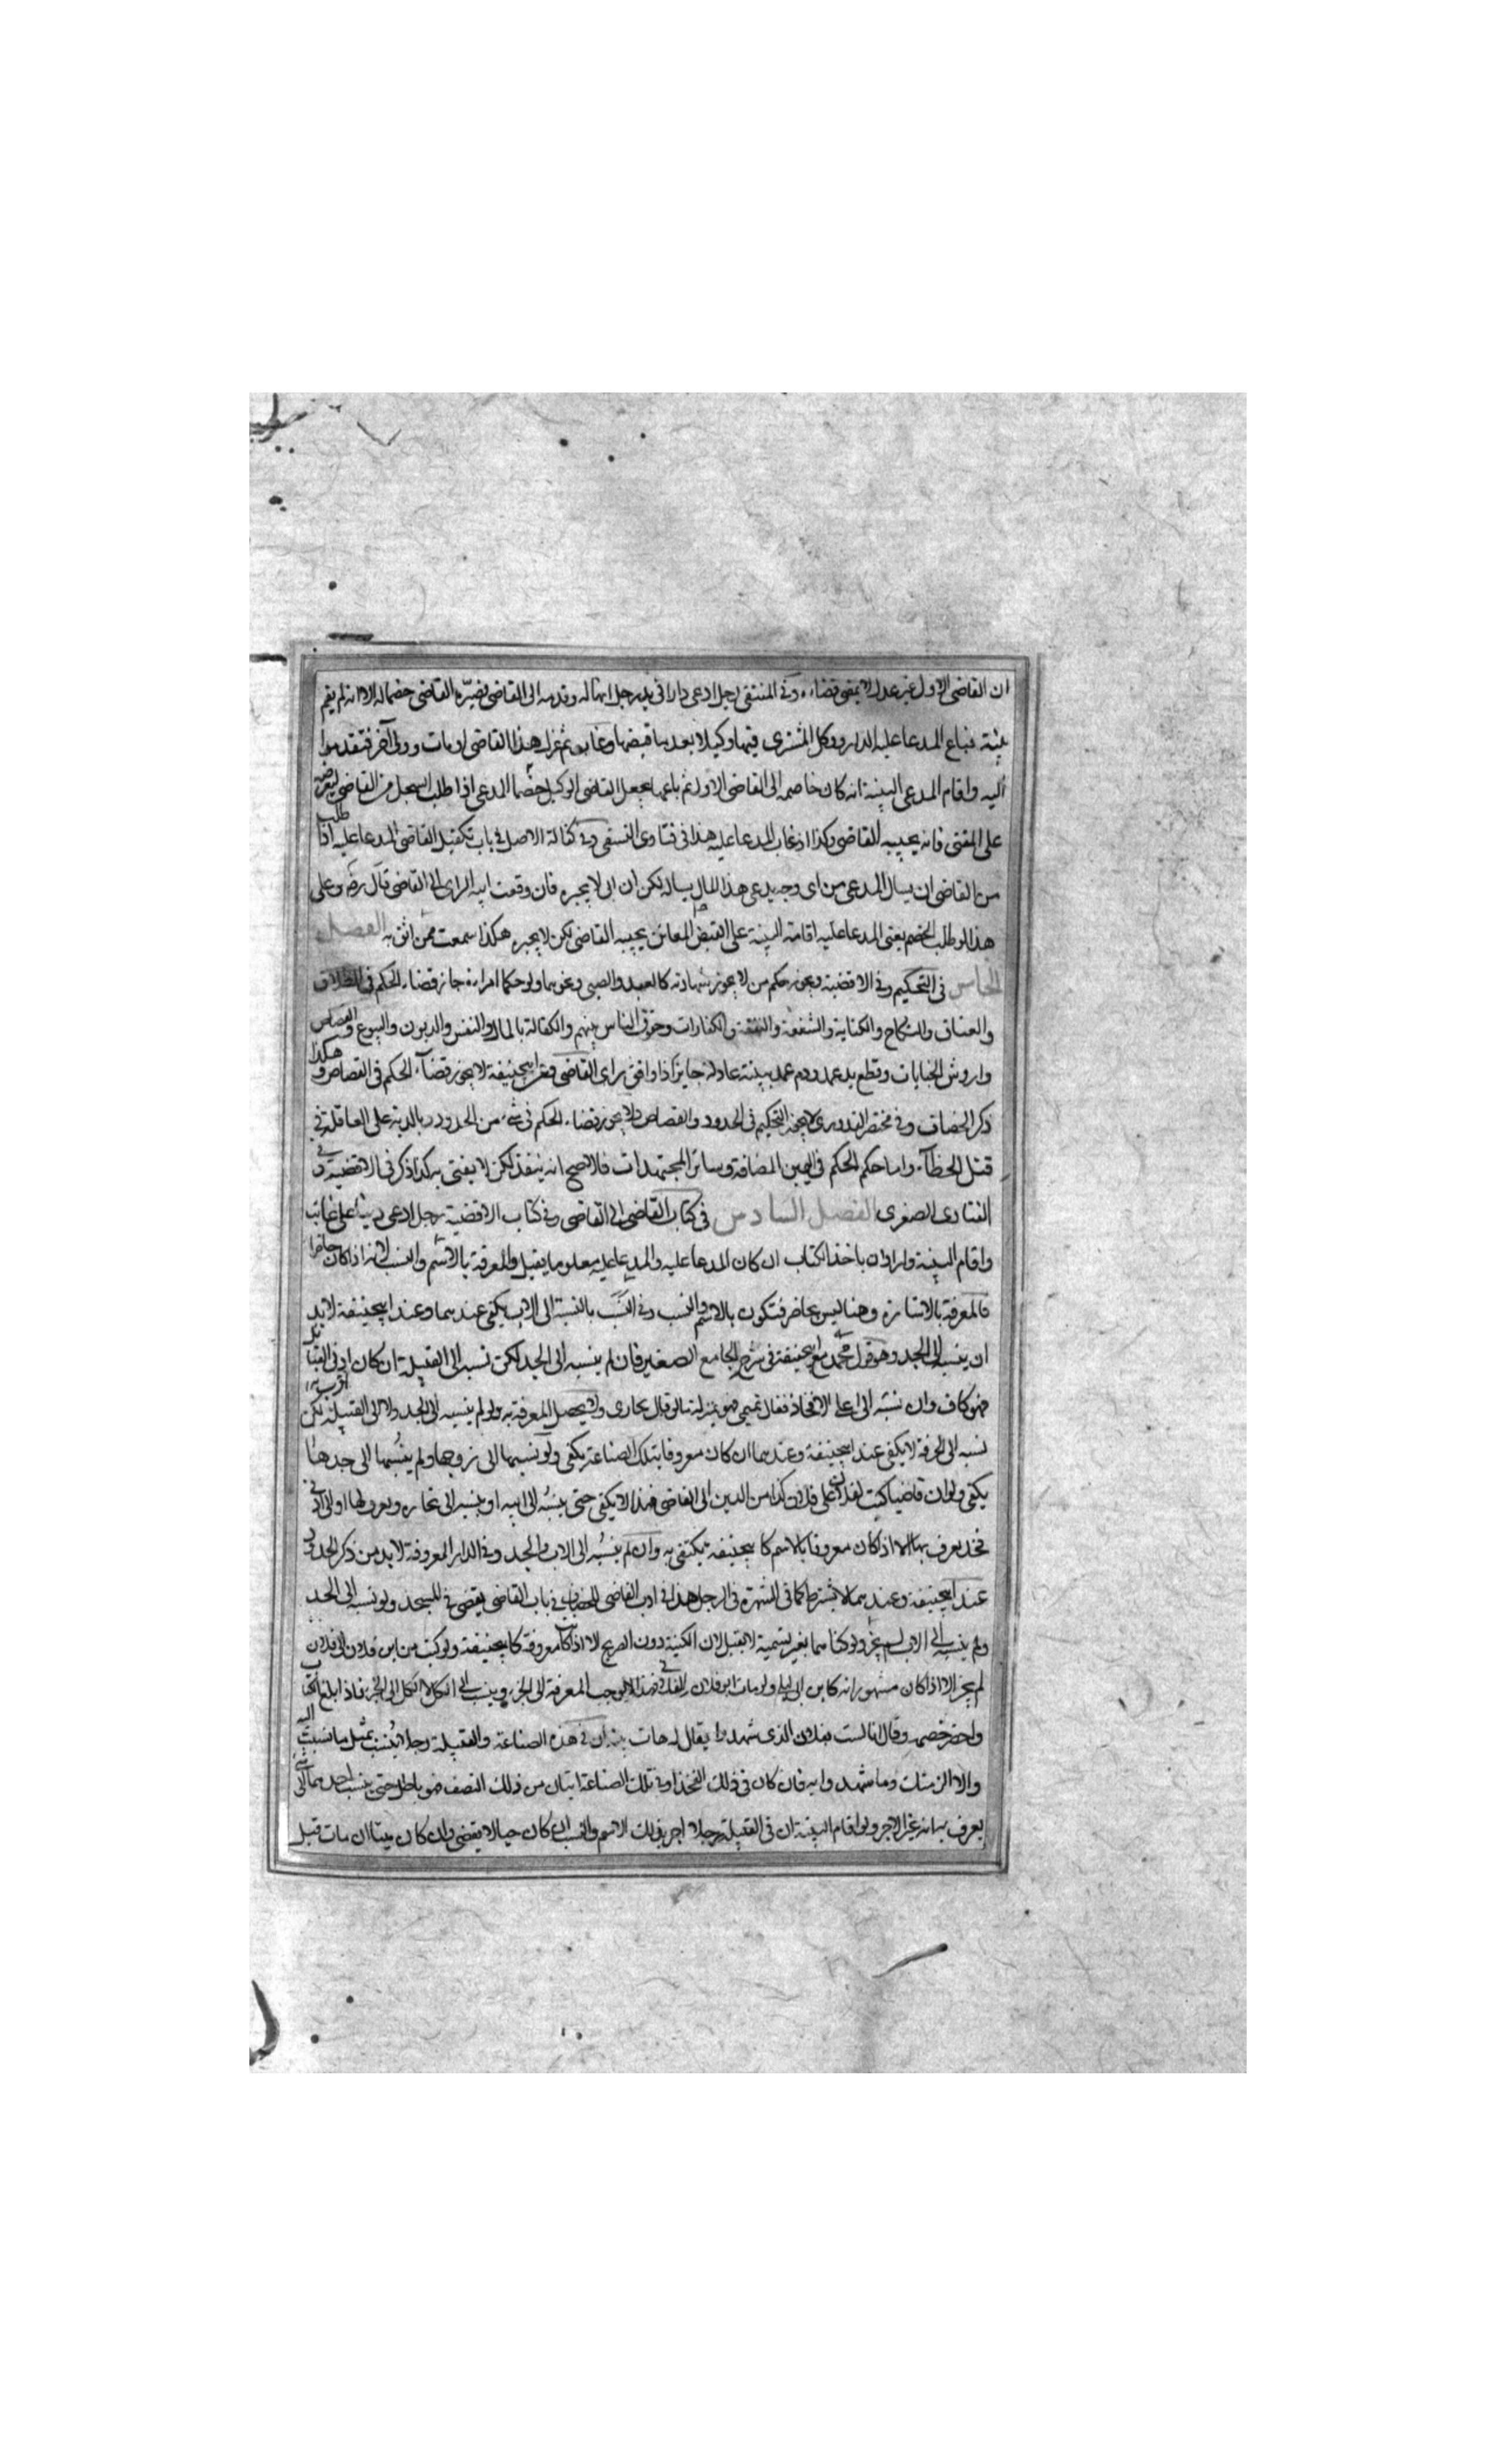 ان القاضى الاول غير عدل لا يمضى قضاءه وفى المنتقى رجل ادعى دارا فى يد رجل انها له وقدمه الى القاضى فصيره القاضى خصما له الا انه لم يقم
بينة فباع المدعا عليه الدار ووكل المشترى فيها وكيلا بعد ما قبضها وغاب ثم عزل هذا القاضى او مات وولى آخر فتقدموا
اليه واقام المدعى البينة انه كان خاصمه الى القاضى الاول ثم باعها يجعل القاضى الوكيل خصما المدعى اذا طلب السجل من القاضى ليعرضه
على المفتى فانه يجيبه القاضى وكذا اذا غاب المدعا عليه هذا فى فتاوى النسفى وفى كفالة الاصل فى باب تكفيل القاضى المدعا عليه اذا طلب
من القاضى ان يسال المدعى من اى وجه يدعى هذا المال يساله لكن ان ابى لا يجبره فان وقعت اليه الراى الى القاضى قال رضه وعلى
هذا لو طلب الخصم يعنى المدعا عليه اقامة البينة على القبض المعاين يجيبه القاضى لكن لا يجبره هكذا سمعت ممن اثق به الفصل
الخامس فى التحكيم وفى الاقضية ويجوز حكم من لا يجوز شهادته كالعبد والصبى ونحوهما ولو حكما امراءة جاز قضاء الحكم فى الطلاق
والعتاق والنكاح والكناية والشفعة والنفقة والكفارات وحقوق الناس بينهم والكفالة بالمال والنفس والديون والبيوع والقصاص
واروش الجنايات وقطع يد عمد ودم عمد ببينة عادلة جايز اذا وافق براى القاضى وعن ابيحنيفة لا يجوز قضاء الحكم فى القصاص وهكذا
ذكر الخصاف وفى مختصر القدورى لا يجوز التحكيم فى الحدود والقصاص ولا يجوز قضاء الحكم فى شئ من الحدود وبالدية على العاقلة فى
قتل الخطآ واما حكم الحكم فى اليمين المضافة وسائر المجتهدات فالاصح انه ينفذ لكن لا يفتى به كذا ذكر فى الاقضية وفى
الفتاوى الصغرى الفصل السادس فى كتاب القاضى الى القاضى وفى كتاب الاقضية رجل ادعى دينا على غايب
واقام البينة واراد ان ياخذ الكتاب ان كان المدعا عليه والمدعا عليه معلوما يقبل والمعرفة بالاسم والنسب لانه اذا كان حاضرا
فالمعرفة بالاشارة وهنا ليس بحاضر فتكون بالاسم والنسب وفى النسب بالنسبة الى الاب يكفى عندهما وعند ابيحنيفة لا بد
ان ينسب الى الجد وهو قول محمد مع ابيحنيفة فى شرح الجامع الصغير فان لم ينسبه الى الجد لكن نسبه الى القبيلة ان كان ادنى القبائل
فهو كاف وان نسبه الى اعلى الافخاذ فقال تميمى فهو بمنزلة ما لو قال بخارى ولا يحصل المعرفة به ولو لم ينسبه الى الجد ولا الى القبيلة لكن
نسبه الى الحرفة لا يكفى عند ابيحنيفة وعندهما ان كان معروفا بتلك الصناعة يكفى ولو نسبها الى زوجها ولم ينسبها الى جدها
يكفى ولو ان قاضيا كتب لفلان على فلان كذا من الدين الى القاضى فهذا لا يكفى حتى ينسبه الى ابيه او ينسبه الى
فخذ يعرف بها الا اذا كان معروفا بالاسم كابيحنيفة يكتفى به وان لم ينسبه الى الاب والجد وفى الدار المعروفة لا بد من ذكر الحدود
عند ابيحنيفة وعندهما لا يشترط كما فى الشهرة فى الرجل هذا فى ادب القاضى للخصاف فى باب القاضى يقضى فى المسجد ولو نسبه الى الجد
ولم ينسبه الى الاب لم يجز ولو كناهما بغير تسمية لا تقبل لان الكنية دون الصريح الا اذا كانت معروفة كابيحنيفة ولو كتب من ابن فلان الى فلان
لم يجز الا اذا كان مشهورا انه كابن ابى ليلى
واحضر خصمه وقال انا لست بفلان الذى شهدوا يقال له هات بينة ان فى هذه الصناعة والقبيلة رجلا ينسب بمثل ما نسبت اليه
والا الزمتك وما شهدوا به فان كان فى ذلك الفخذ او فى تلك الصناعة اثنان من ذلك النصف فهو باطل حتى ينسب احدهما الى شئ
يعرف به انه غير الاخر ولو اقام البينة ان فى القبيلة رجلا اخر بذلك الاسم والنسب ان كان حيا لا يقضى وان كان ميتا ان مات قبل